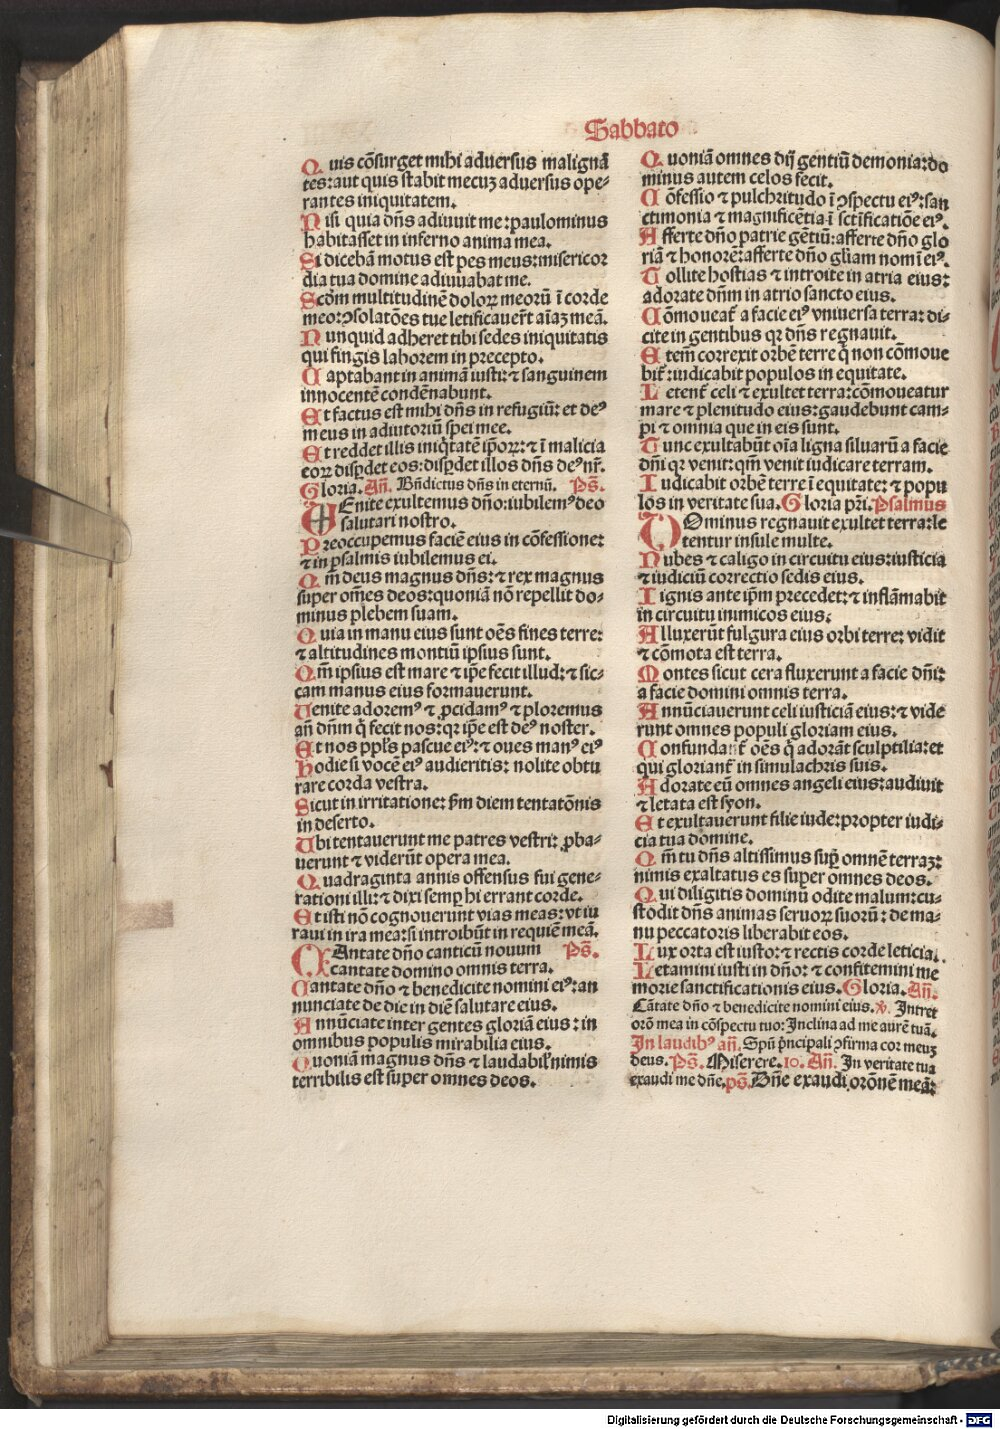 Sabbato
Quis cõsurget mihi adversus malignã
tes: aut quis stabit mecuꝫ adversus ope⸗
rantes iniquitatem.
Nisi quia dñs adiuvit me: paulominus
habitasset in inferno anima mea.
Si dicebã motus est pes meus: misericor
dia tua domine adiuvabat me.
Scd̃m multitudinẽ doloꝝ meorũ ĩ corde
meo: ↄsolatões tue letificaverũt aĩaꝫ meã.
Nunquid adheret tibi sedes iniquitatis
qui fingis laborem in precepto.
Captabant in animã iusti: ⁊ sanguinem
innocentẽ condẽnabunt.
Et factus est mihi dñs in refugiũ: et deꝰ
meus in adiutoriũ spei mee.
Et reddet illis iniq̃tatẽ ip̃oꝝ: ⁊ ĩ malicia
eoꝝ disp̱det eos: disp̱det illos dñs deꝰ nr̃.
Gloria. Añ. Bñdictus dñs in eternũ. Ps̃.
VEnite exultemus dño: iubilemꝰ deo
salutari nostro.
Preoccupemus faciẽ eius in cõfessione:
⁊ in psalmis iubilemus ei.
Qm̃ deus magnus dñs: ⁊ rex magnus
super om̃es deos: quoniã nõ repellit do⸗
minus plebem suam.
Quia in manu eius sunt oẽs fines terre:
⁊ altitudines montiũ ipsius sunt.
Qm̃ ipsius est mare ⁊ ip̃e fecit illud: ⁊ sic⸗
cam manus eius formaverunt.
Venite adoremꝰ ⁊ ꝓcidamꝰ ⁊ ploremus
añ dñm q̃ fecit nos: qꝛ ip̃e est deꝰ noster.
Et nos ppl̃s pascue eiꝰ: ⁊ oves manꝰ eiꝰ
Hodie si vocẽ eiꝰ audieritis: nolite obtu
rare corda vestra.
Sicut in irritatione: ẜm diem tentatõnis
in deserto.
Vbi tentaverunt me patres vestri: ꝓba⸗
verunt ⁊ viderũt opera mea.
Quadraginta annis offensus fui gene⸗
rationi illi: ⁊ dixi semp̱ hi errant corde.
Et isti nõ cognoverunt vias meas: vt iu
ravi in ira mea: si introibũt in requiẽ meã.
CAntate dño canticũ novum Ps̃.
cantate domino omnis terra.
Cantate dño ⁊ benedicite nomini eiꝰ: an
nunciate de die in diẽ salutare eius.
Annũciate inter gentes gloriã eius: in
omnibus populis mirabilia eius.
Quoniã magnus dñs ⁊ laudabil̃ nimis
terribilis est super omnes deos.
Quoniã omnes dij gentiũ demonia: do
minus autem celos fecit.
Cõfessio ⁊ pulchritudo ĩ ↄspectu eiꝰ: san
ctimonia ⁊ magnificẽtia ĩ sctĩficatiõe eiꝰ.
Afferte dño patrie gẽtiũ: afferte dño glo
riã ⁊ honorẽ: afferte dño gl̃iam nomĩ eiꝰ.
Tollite hostias ⁊ introite in atria eius:
adorate dñm in atrio sancto eius.
Cõmoveat̃ a facie eiꝰ vniversa terra: di⸗
cite in gentibus qꝛ dñs regnavit.
Etem̃ correxit orbẽ terre q̃ non cõmove
bit̃: iudicabit populos in equitate.
Letent̃ celi ⁊ exultet terra: cõmoveatur
mare ⁊ plenitudo eius: gaudebunt cam⸗
pi ⁊ omnia que in eis sunt.
Tunc exultabũt oĩa ligna silvarũ a facie
dñi qꝛ venit: qm̃ venit iudicare terram.
Iudicabit orbẽ terre ĩ equitate: ⁊ popu
los in veritate sua. Gloria pr̃i. Psalmus
DOminus regnavit exultet terra: le
tentur insule multe.
Nubes ⁊ caligo in circuitu eius: iusticia
⁊ iudiciũ correctio sedis eius.
Iignis ante ip̃m precedet: ⁊ inflãmabit
in circuitu inimicos eius.
Alluxerũt fulgura eius orbi terre: vidit
⁊ cõmota est terra.
Montes sicut cera fluxerunt a facie dñi:
a facie domini omnis terra.
Annũciaverunt celi iusticiã eius: ⁊ vide
runt omnes populi gloriam eius.
Confundant̃ oẽs q̃ adorãt sculptilia: et
qui gloriant̃ in simulachris suis.
Adorate eũ omnes angeli eius: audivit
⁊ letata est syon.
Et exultaverunt filie iude: propter iudi⸗
cia tua domine.
Qm̃ tu dñs altissimus sup̱ omnẽ terraꝫ:
nimis exaltatus es super omnes deos.
Qui diligitis dominũ odite malum: cu⸗
stodit dñs animas servoꝝ suorũ: de ma⸗
nu peccatoris liberabit eos.
Lux orta est iusto: ⁊ rectis corde leticia.
Letamini iusti in dño: ⁊ confitemini me
morie sanctificationis eius. Gloria. Añ.
Cãtate dño ⁊ benedicite nomini eius. ℣. Intret
orõ mea in cõspectu tuo: Inclina ad me aurẽ tuã.
In laudibꝰ añ. Spũ p̃ncipali ↄfirma cor meuꝫ
deus. Ps̃. Miserere. 10. Añ. In veritate tua
exaudi me dñe. ps̃. Dñe exaudi orõnẽ meã:
Digitalisierung gefördert durch die Deutsche Forschungsgemeinschaft - DFG